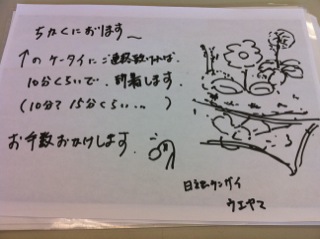 ちかくにおります〜
↑の ケータイに ご連絡頂ければ
10分くらいで、到着します
(10分? 15分くらい... )
お手数おかけします
ウエヤマ